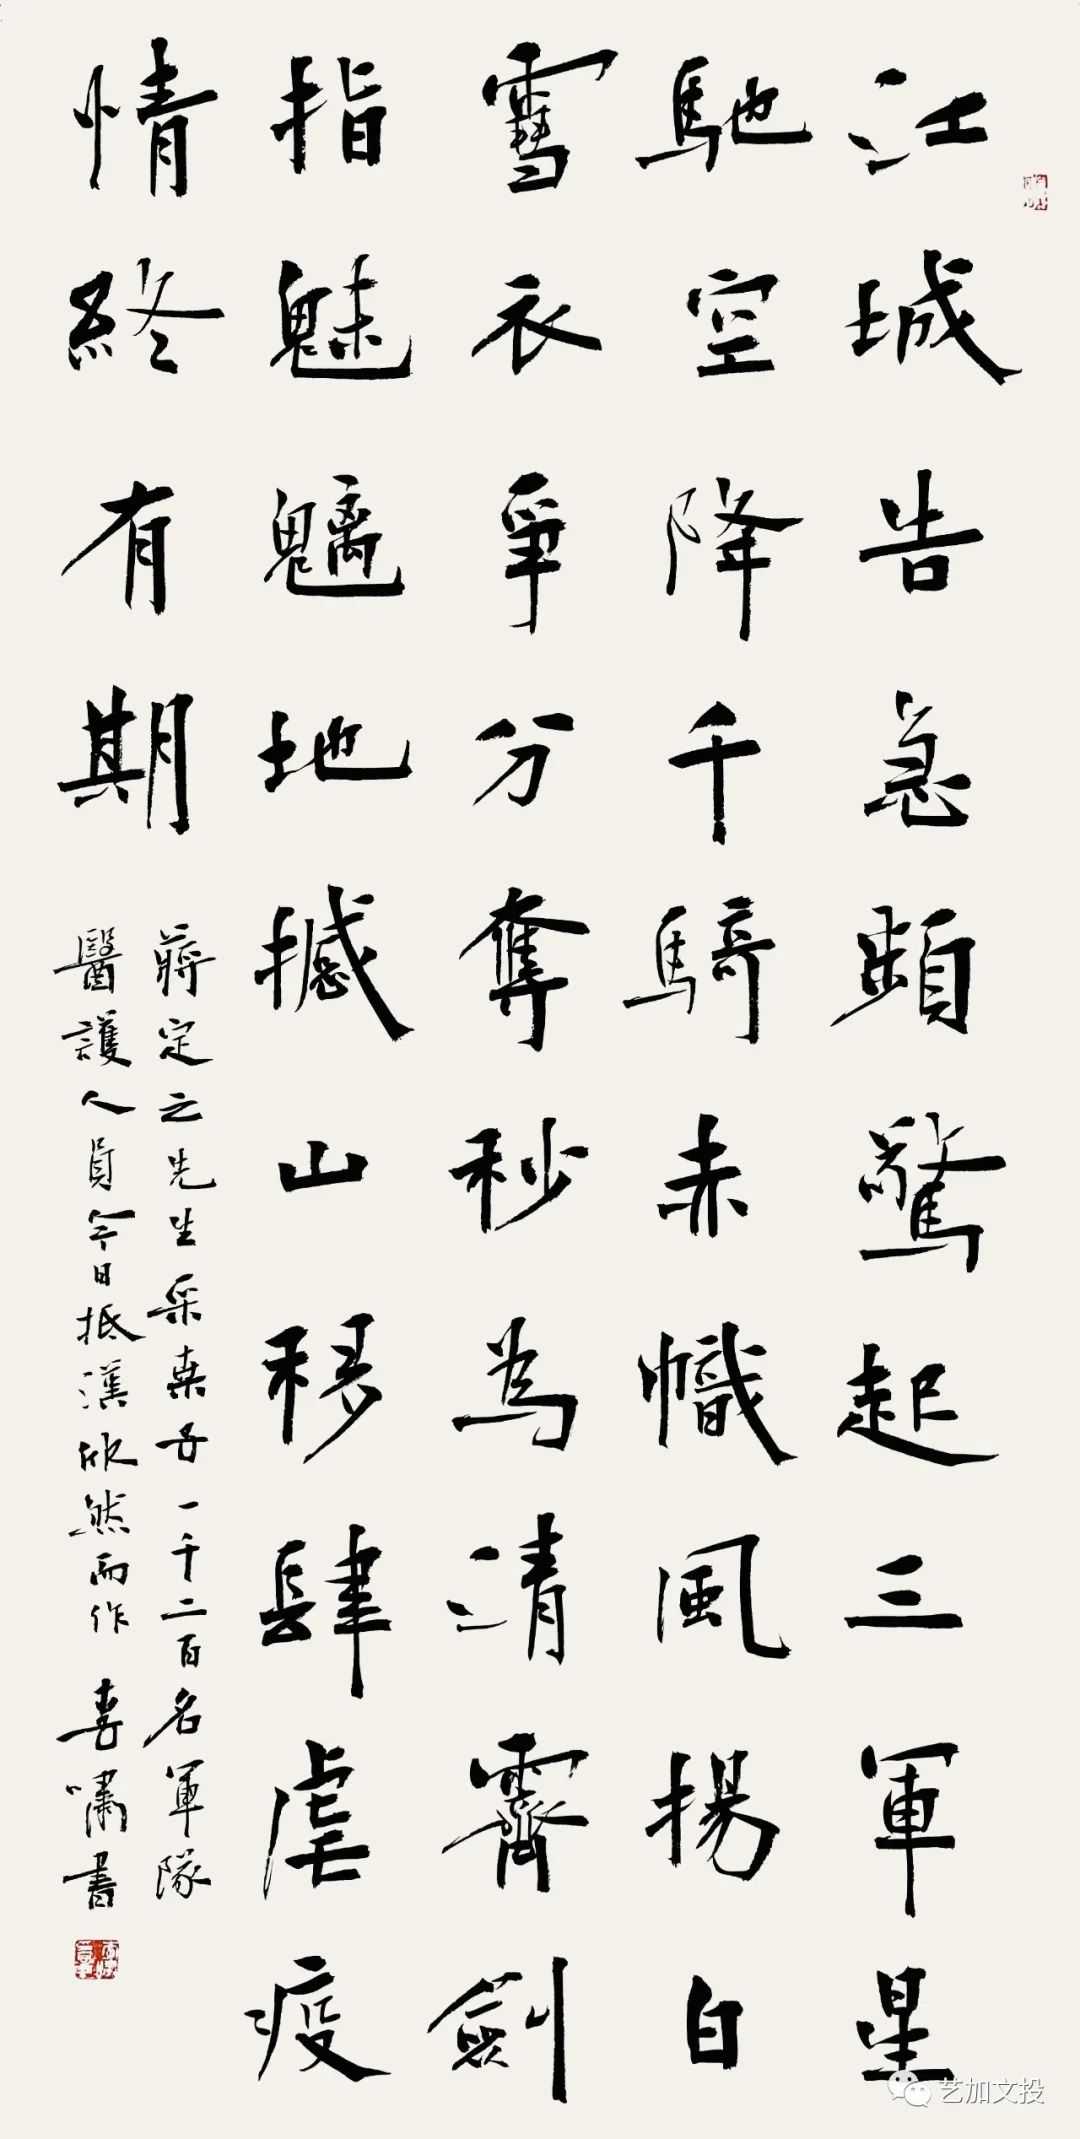 江城告急頻驚起三軍星
馳空降千騎赤幟風揚白
雪衣爭分奪秒為清霽劍
指魅魑地撼山移肆虐疫
情終有期
蔣定之先生采桑子一千二百名軍隊
醫護人員今日抵漢欣然而作 喜嘯書
艺加文投